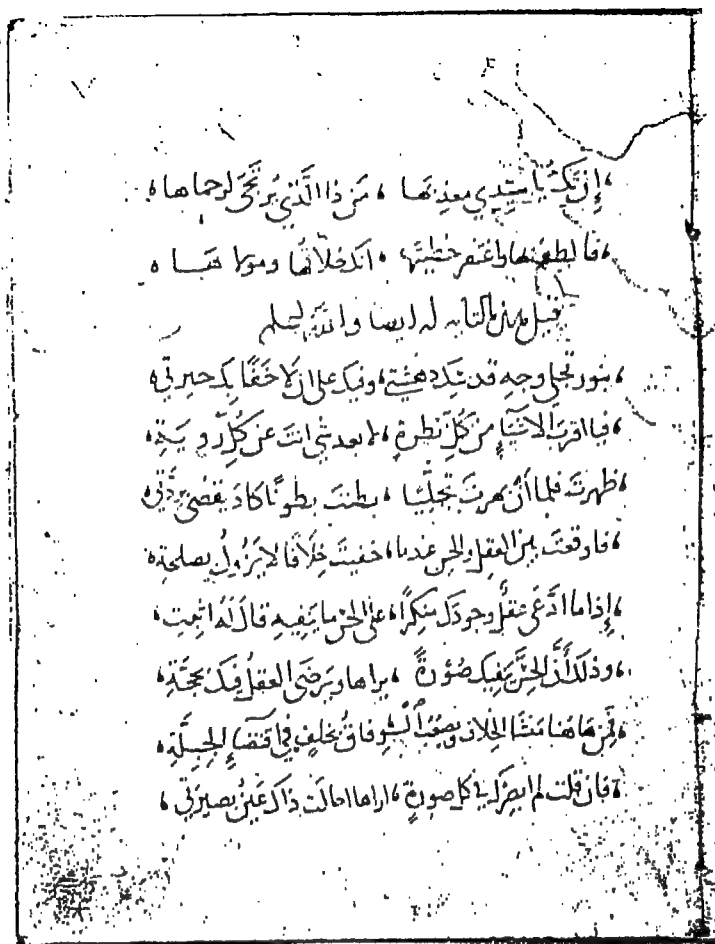 إن تكن يا سيدي معذبها ، من ذا الذي يرتجى لرحماها
فالطف بها واغفر خطيتها ، انك خلاقها ومولاها
قيل هذه التايه له ايضا والله اعلم
بنور تجلى وجه قدسك دهشتي ، وفيك على ان لا خفا بك حيرتي
فيا اقرب الاشيآءِ من كل نظرة ، لابعد شي انت عن كل رويةِ
ظهرت فلما أن بهرت تجليا ، بطنت بطونًا كاد يقضي بردتي
فاوقعت بين العقل والحس عندما ، خفيت خلافًا لا يزولُ بصلحةِ
إذا ما ادَّعى عقلٌ وجودك منكرًا ، على الحس ما ينفيهِ قال لهُ اثبتِ
وذلك أنَّ الحسَّ ينفيك صُورةً ، يراها ويرضى العقلُ فيك بحجَّةِ
فمن هاهنا منشا الخلاف ويصعب الوفاقُ بخلفٍ في اقتضآءِ الجبلَّةِ
فان قلت لم ابصرك في كل صورةٍ ، اراها احالت ذاك عينُ بصيرتي